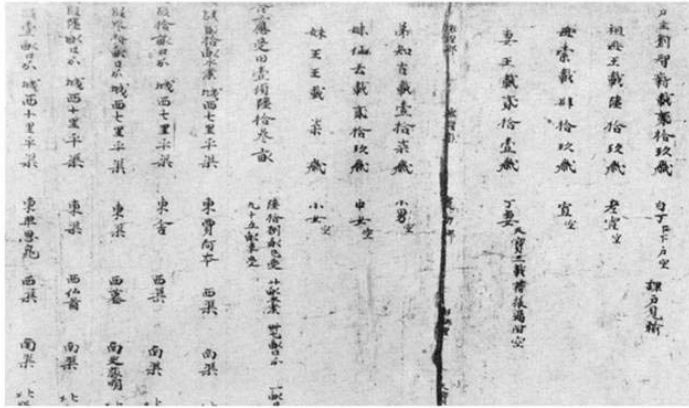 戶主劉智新載貳拾玖歲 白丁下下戶空 課戶見輸
祖母王載陸拾玖歲 老寡空
母索載肆拾玖歲 寡空
妻王載貳拾壹歲 丁妻 天寶三載籍後漏附空
弟知古載壹拾柒歲 小男空
妹仙云載貳拾玖歲 中女空
妹王王載柒歲 小女空
合應受田壹頃陸拾叁畝 陸拾捌畝已受 廿畝永業 卌七畝口分 一畝
九十五畝未受
段貳拾畝永業 城西七里平渠 東賈阿本 西渠 南渠 北
段拾畝口分 城西七里平渠 東舍 西渠 南渠 北
畝口分 城西七里平渠 東渠 西墓 南史 北
段陸畝口分 城西十里平渠 東渠 西仙首 南渠 北
段壹畝口分 城西十里平渠 東 西渠 南渠 北